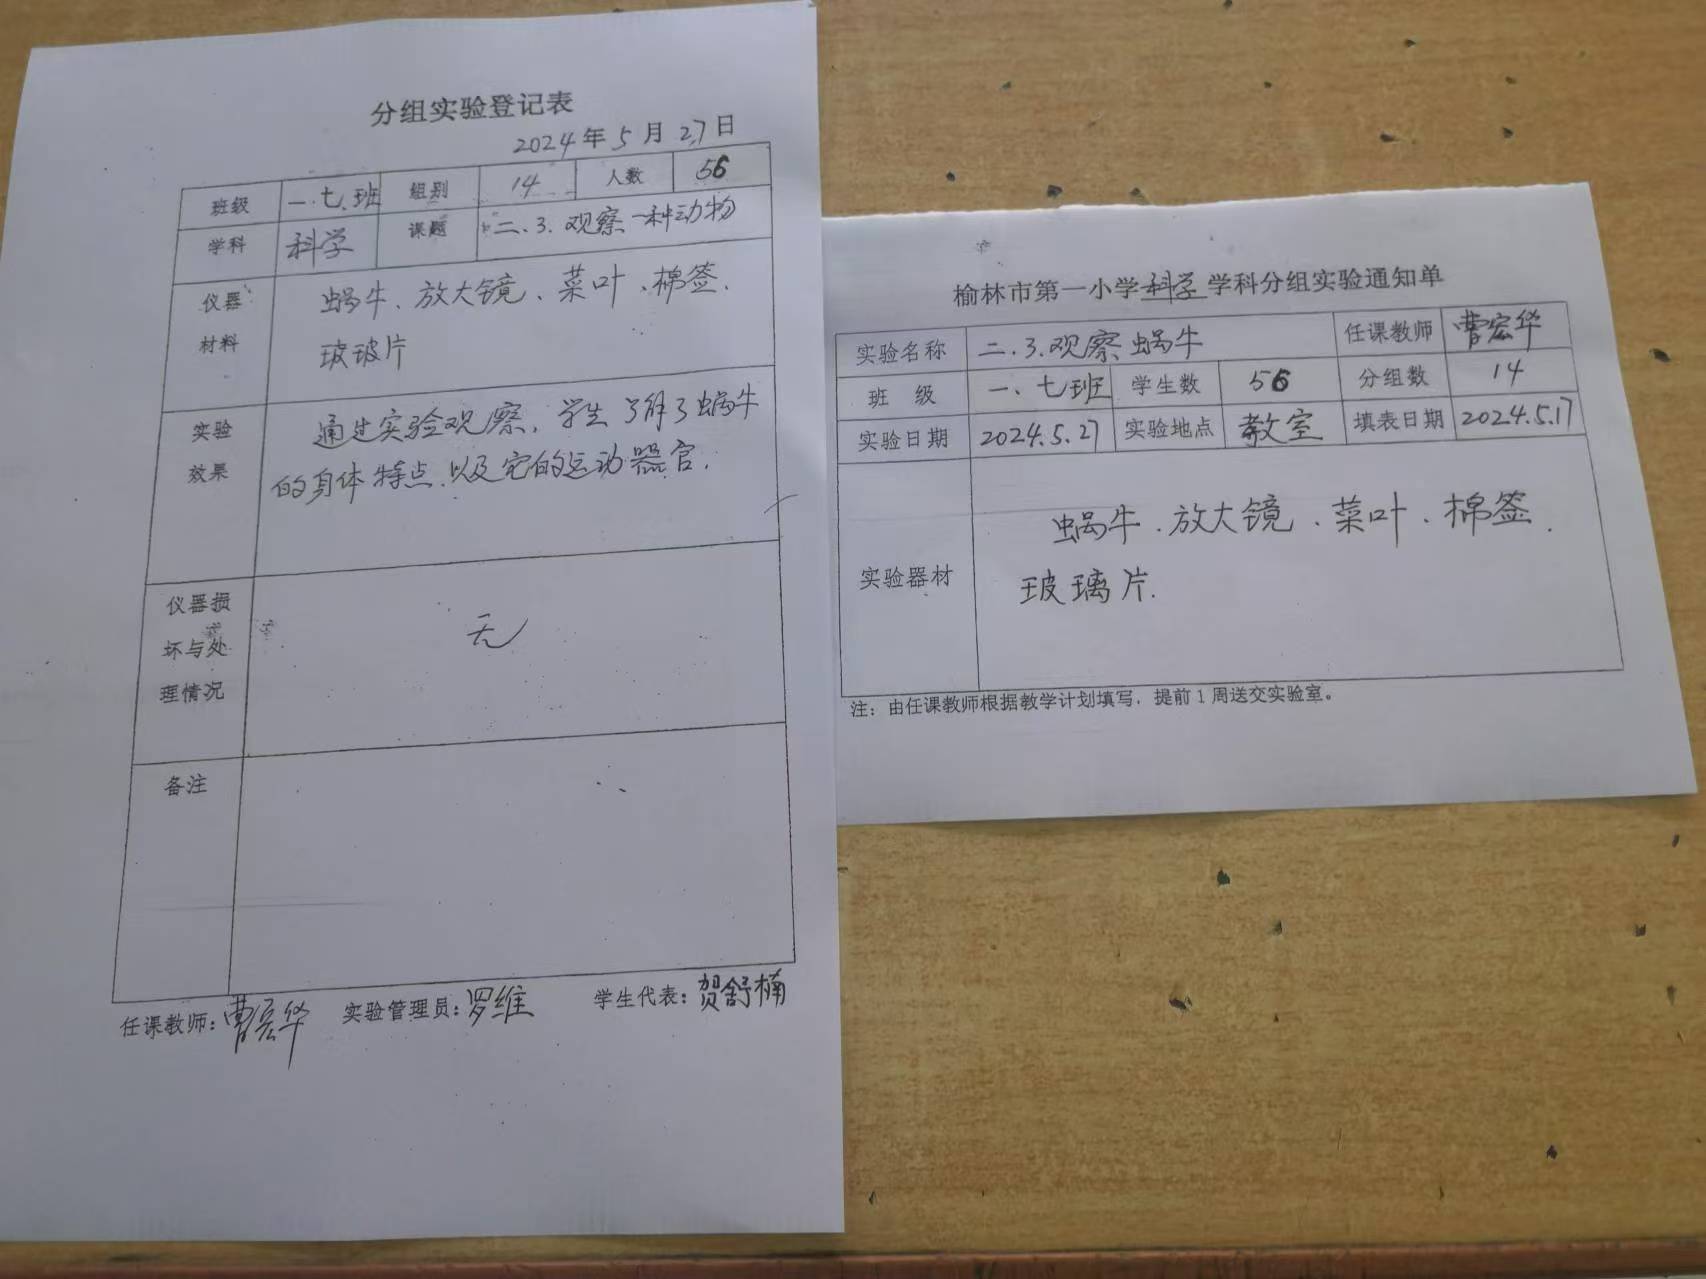 分组实验登记表
2024年5月27日
班级 一.七.班 组别 14 人数 56
学科 科学 课题 二.3.观察一种动物
仪器材料 蜗牛、放大镜、菜叶、棉签.
玻玻片
实验效果 通过实验观察，学生了解了蜗牛
的身体特点.以及它的运动器官.
仪器损坏与处理情况 无
备注
任课教师：曹宏华 实验管理员：罗维 学生代表：贺舒楠
榆林市第一小学科学学科分组实验通知单
实验名称 二.3.观察蜗牛 任课教师 曹宏华
班级 一、七班 学生数 56 分组数 14
实验日期 2024.5.27 实验地点 教室 填表日期 2024.5.17
实验器材 蜗牛.放大镜、菜叶、棉签.
玻璃片.
注：由任课教师根据教学计划填写，提前1周送交实验室。